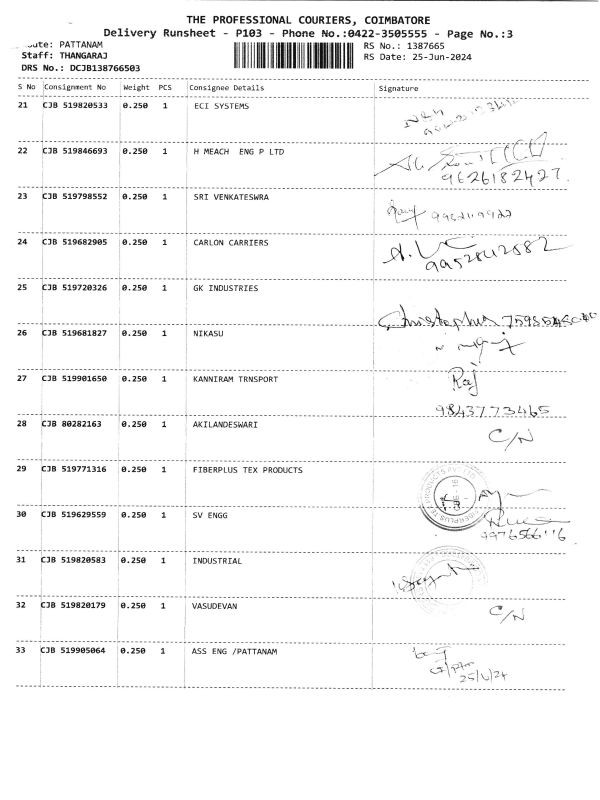 THE PROFESSIONAL COURIERS, COIMBATORE
Delivery Runsheet - P103 - Phone No.:0422-3505555 - Page No.:3
ute: PATTANAM RS No.: 1387665
Staff: THANGARAJ RS Date: 25-Jun-2024
DRS No.: DCJB138766503
S No Consignment No Weight PCS Consignee Details Signature
21 CJB 519820533 0.250 1 ECI SYSTEMS
22 CJB 519846693 0.250 1 H MEACH ENG P LTD
9626182427.
23 CJB 519798552 0.250 1 SRI VENKATESWRA
24 CJB 519682905 0.250 1 CARLON CARRIERS
9952842582
25 CJB 519720326 0.250 1 GK INDUSTRIES
Christopher
26 CJB 519681827 0.250 1 NIKASU
27 CJB 519901650 0.250 1 KANNIRAM TRNSPORT
Raj
9843773465
28 CJB 80282163 0.250 1 AKILANDESWARI
C/N
29 CJB 519771316 0.250 1 FIBERPLUS TEX PRODUCTS
FIBERPLUS TEX PRODUCTS PVT LTD
30 CJB 519629559 0.250 1 SV ENGG
31 CJB 519820583 0.250 1 INDUSTRIAL
32 CJB 519820179 0.250 1 VASUDEVAN
C/N
33 CJB 519905064 0.250 1 ASS ENG /PATTANAM
25/6/24